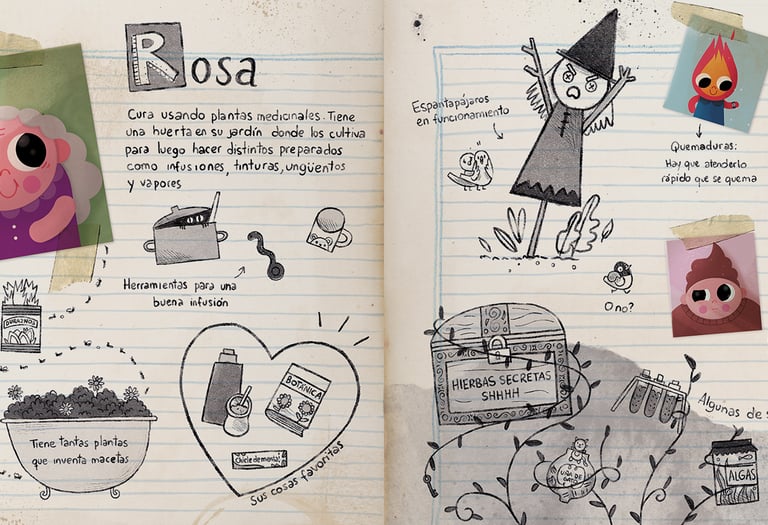 Rosa
Cura usando plantas medicinales. Tiene
una huerta en su jardín donde los cultiva
para luego hacer distintos preparados
como infusiones, tinturas, ungüentos
y vapores
Herramientas para una
buena infusión
DURAZNOS
Tiene tantas plantas
que inventa macetas
BOTÁNICA
Chicle de menta!
sus cosas favoritas
Espantapájaros
en funcionamiento
Quemaduras:
Hay que atenderlo
rápido que se quema
O no?
HIERBAS SECRETAS
SHHHH
UÑA DE
GATO
Algunas de s
ALGAS